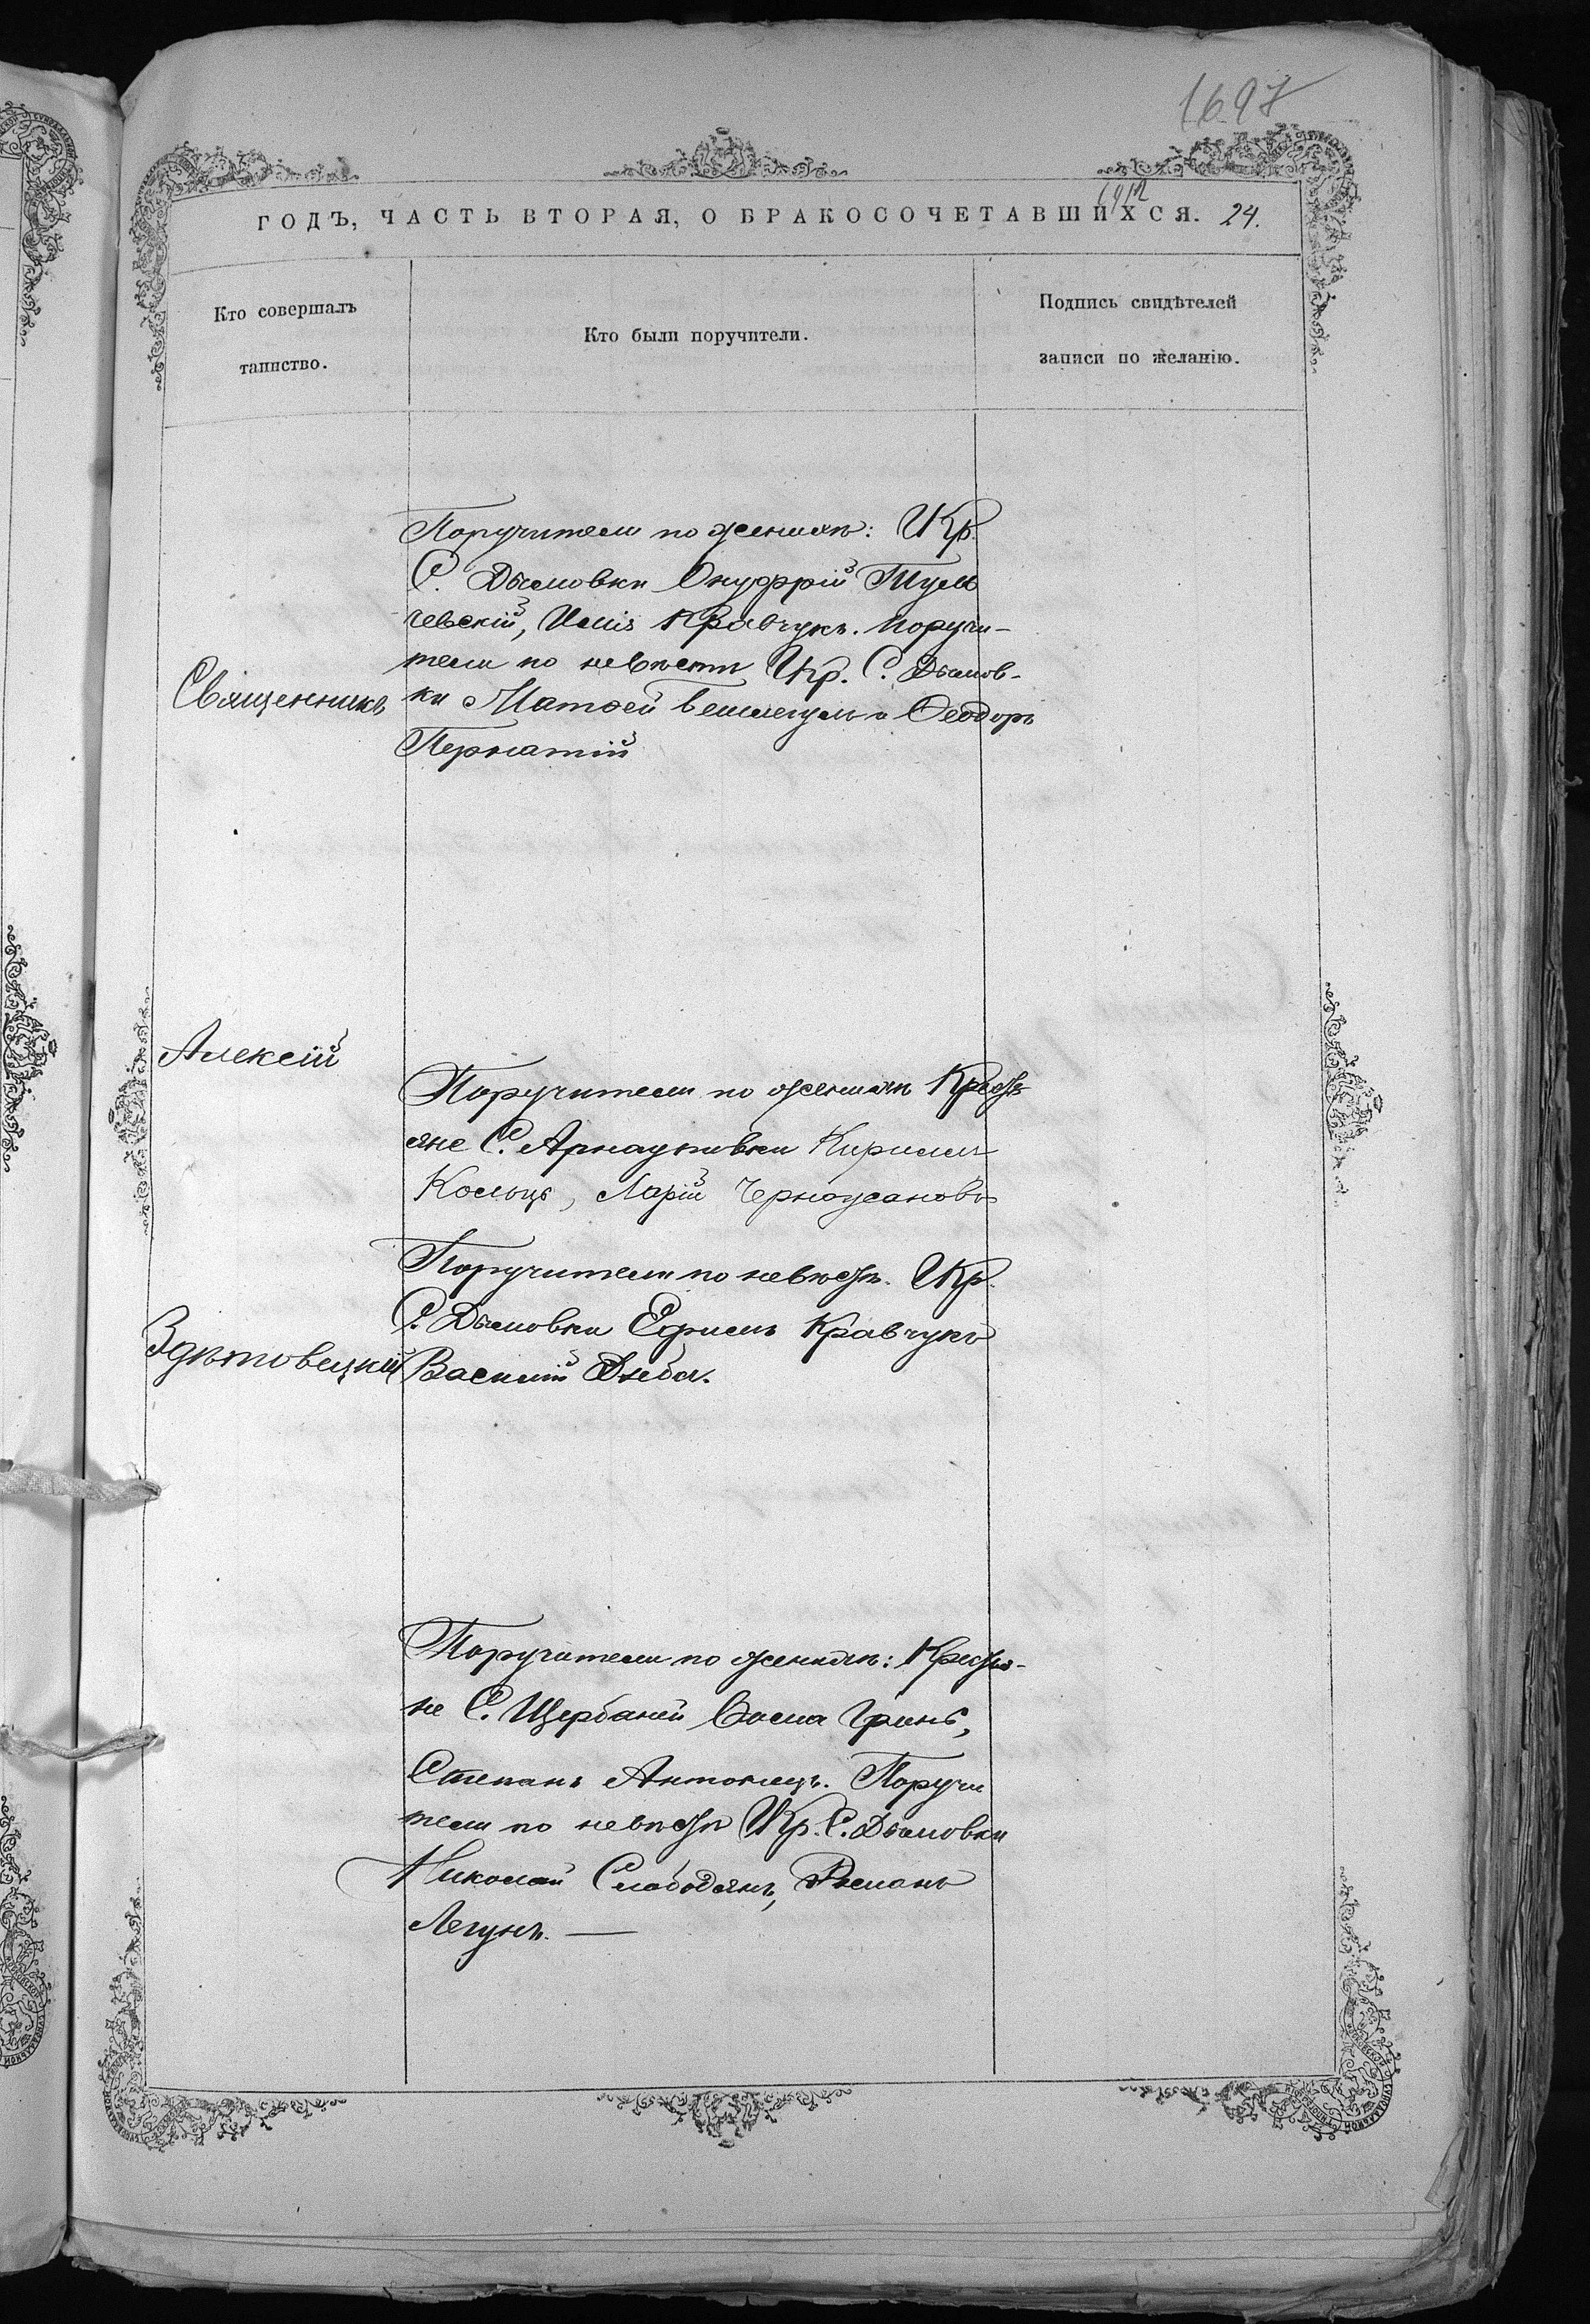 1697
1912
ГОДЪ, ЧАСТЬ ВТОРАЯ, О БРАКОСОЧЕТАВШИХСЯ. 24.
Кто совершалъ
таинство.
Кто были поручители.
Подпись свидѣтелей
записи по желанію.
Священникъ
Алексій
Здѣтовецкій
Поручители по женихѣ: Кр.
С. Дымовки Онуфрій Туль
чевскій, Илія Кравчукъ. Поручи-
тели по невѣсти Кр. С. Дымов-
ки Матѳей и Ѳеодоръ
Пернатій
Поручители по женихѣ Кресть
яне С. Арнаутовки Кириллъ
Кольцъ, Ларій
Поручители по невѣстѣ. Кр.
С. Дымовки Ефимъ Кравчукъ
Василій Дзюба.
Поручители по женихѣ: Крестья-
не С. Щербаней Гринь,
Степанъ Антонецъ. Поручи
тели по невѣсти Кр. С. Дымовки
Николай Слободянъ, Романъ
Легунъ. —